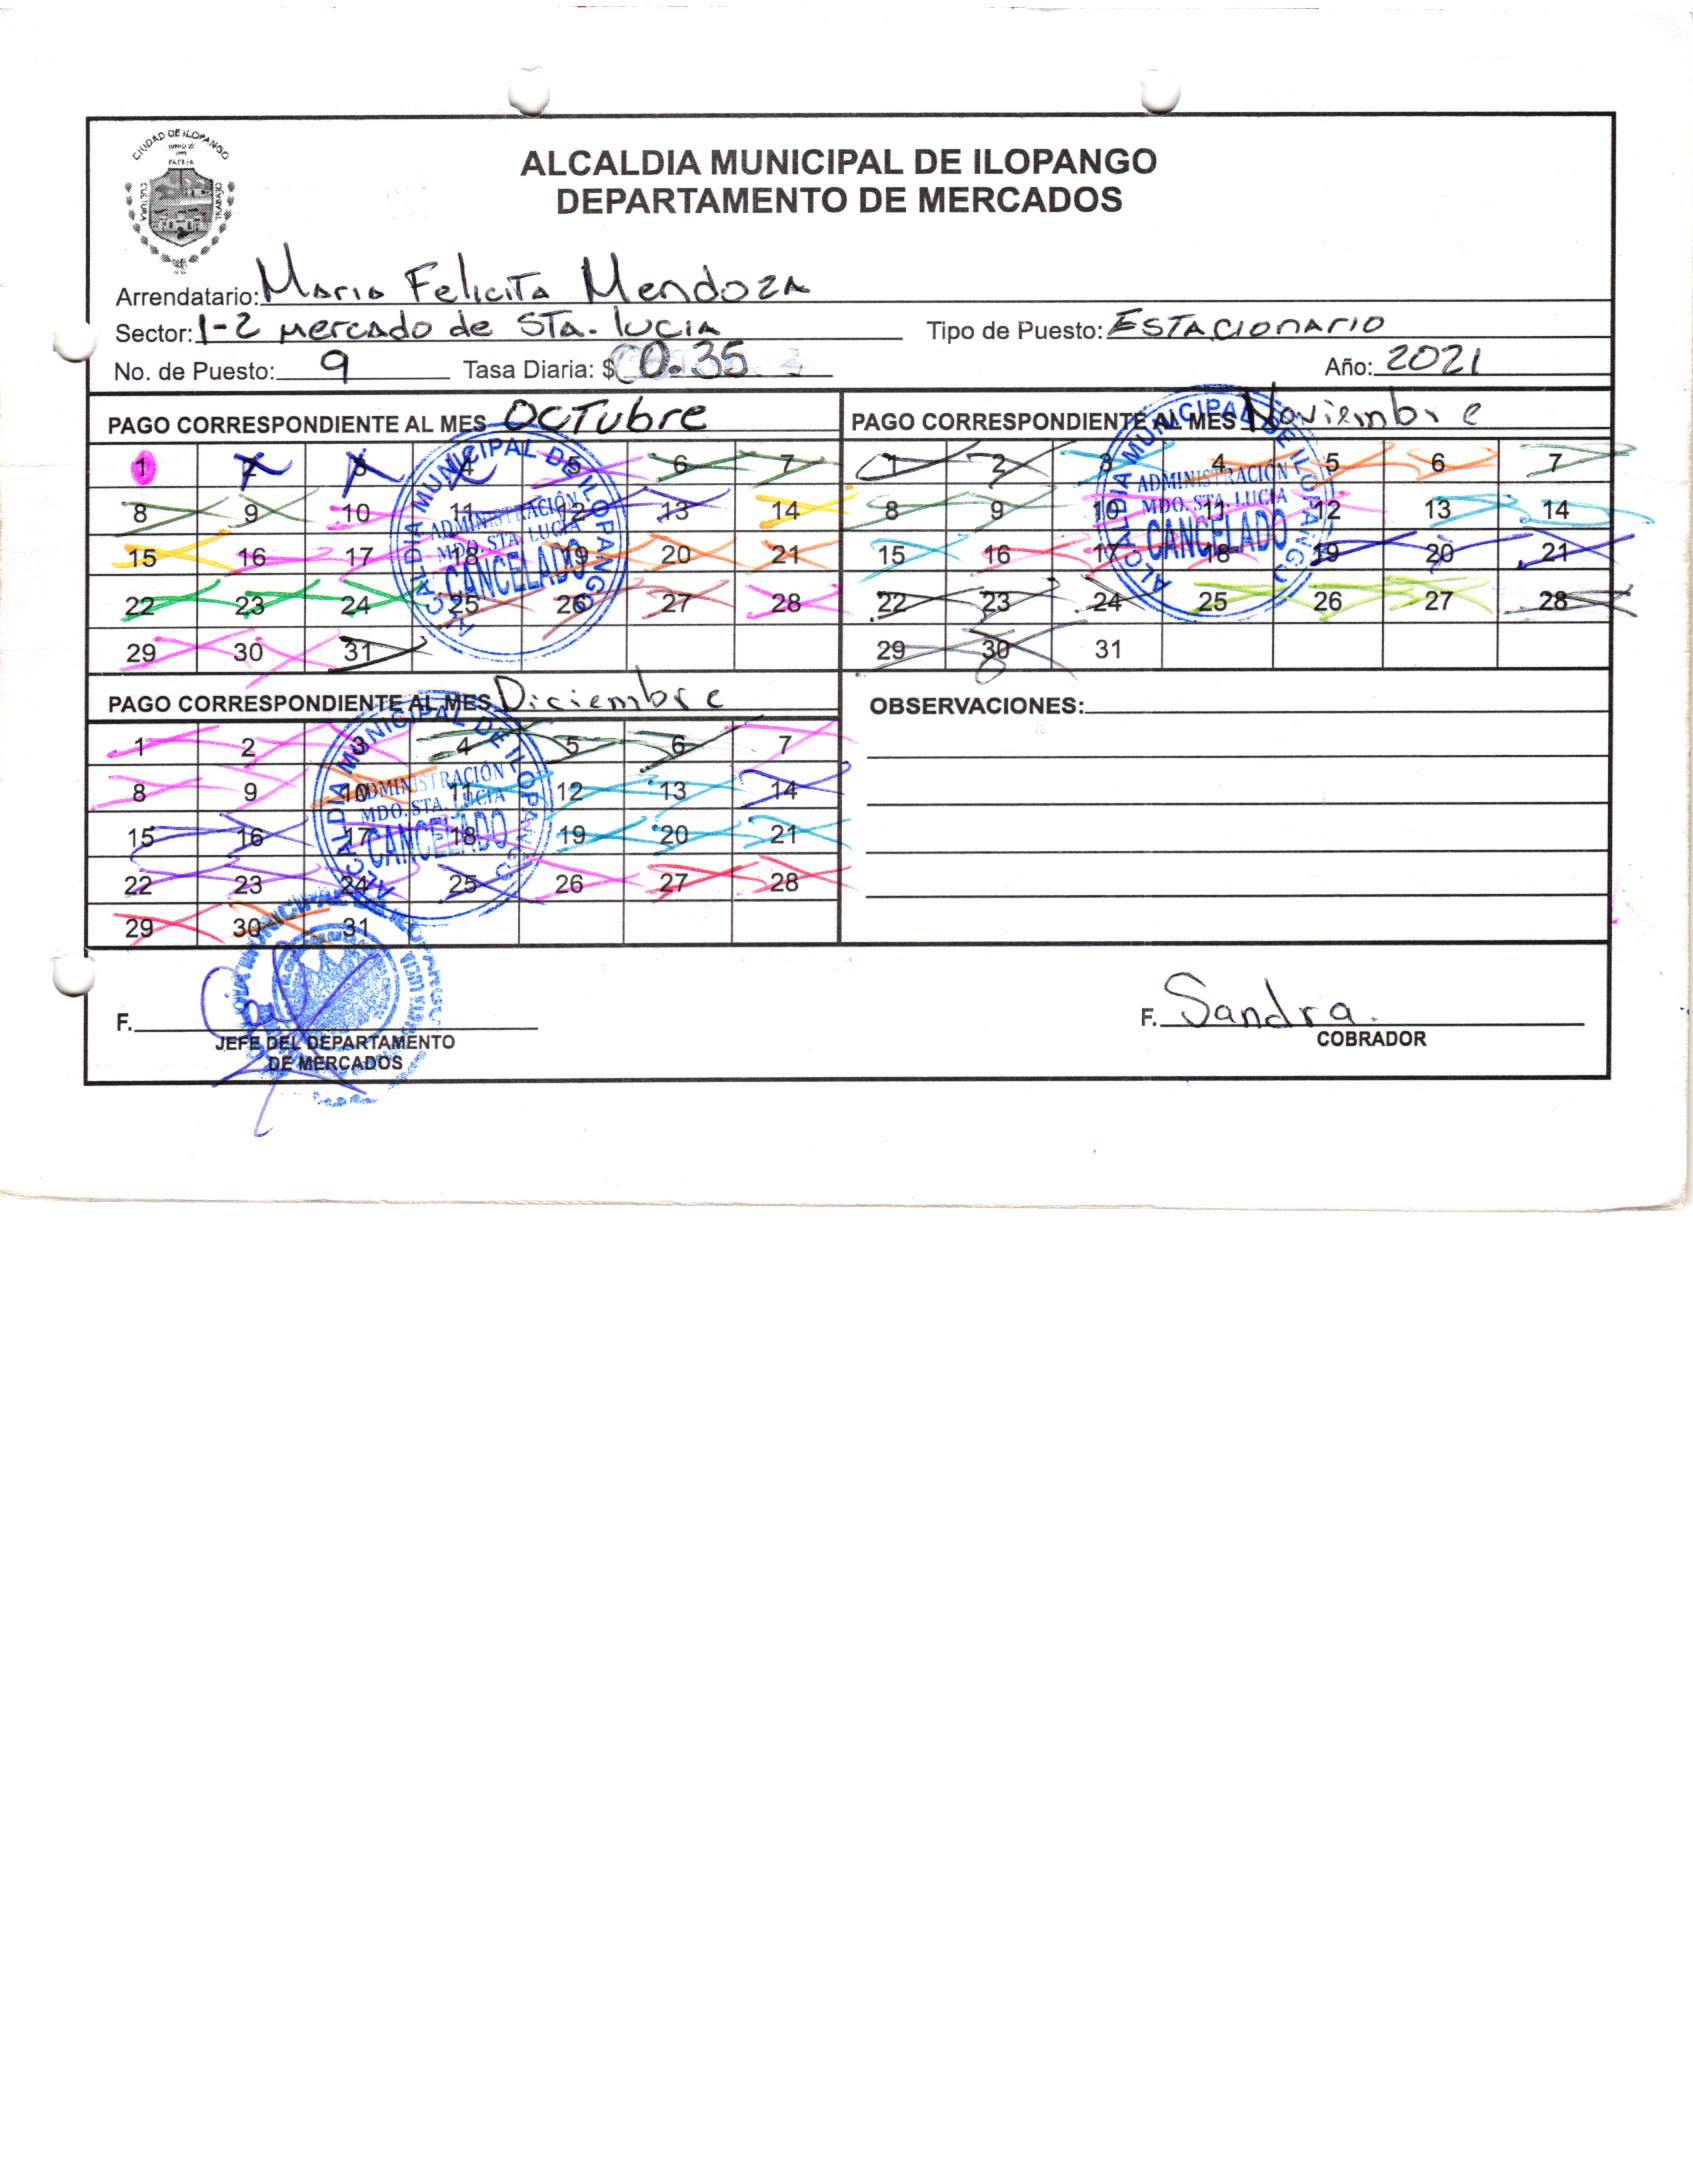 CIUDAD DE ILOPANGO
CULTURA
TRABAJO
ALCALDIA MUNICIPAL DE ILOPANGO
DEPARTAMENTO DE MERCADOS
Arrendatario: Maria Felicita Mendoza
Sector: 1-2 mercado de STa. lucia Tipo de Puesto: ESTACIONARIO
No. de Puesto: 9 Tasa Diaria: $ 0.35 Año: 2021
PAGO CORRESPONDIENTE AL MES OCTubre
1 2 3 4 5 6 7
8 9 10 11 12 13 14
15 16 17 18 19 20 21
22 23 24 25 26 27 28
29 30 31
ALCALDIA MUNICIPAL DE ILOPANGO
ADMINISTRACIÓN
MDO. STA. LUCIA
CANCELADO
PAGO CORRESPONDIENTE AL MES Noviembre
1 2 3 4 5 6 7
8 9 10 11 12 13 14
15 16 17 18 19 20 21
22 23 24 25 26 27 28
29 30 31
ALCALDIA MUNICIPAL DE ILOPANGO
ADMINISTRACIÓN
MDO. STA. LUCIA
CANCELADO
PAGO CORRESPONDIENTE AL MES Diciembre
1 2 3 4 5 6 7
8 9 10 11 12 13 14
15 16 17 18 19 20 21
22 23 24 25 26 27 28
29 30 31
ALCALDIA MUNICIPAL DE ILOPANGO
ADMINISTRACIÓN
MDO. STA. LUCIA
CANCELADO
OBSERVACIONES:
F.
JEFE DEL DEPARTAMENTO
DE MERCADOS
F. Sandra.
COBRADOR